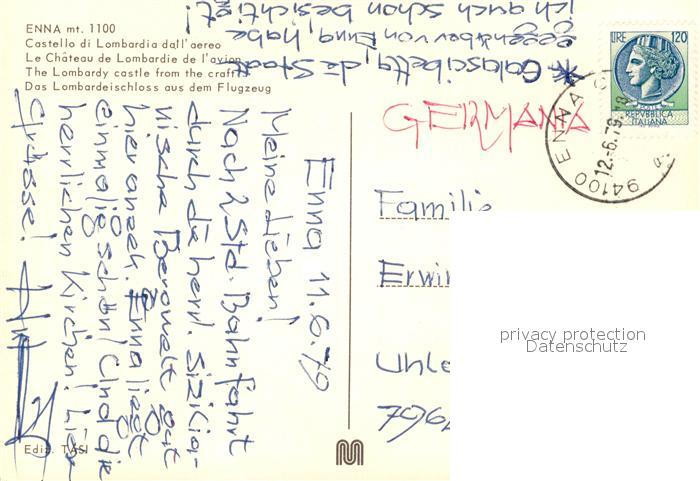 ENNA mt. 1100
Castello di Lombardia dall'aereo
Le Château de Lombardie de l'avion
The Lombardy castle from the craft
Das Lombardeischloss aus dem Flugzeug
* Calascibetta, die Stadt
gegenüber von Enna, habe
ich auch schon besichtigt!
LIRE 120
REPVBBLICA
ITALIANA
94100 ENNA
12.-6.79
GERMANIA
Enna 11.6.79
Meine Lieben!
Nach 2 Std. Bahnfahrt
durch die herrl. sizilia-
nische Bergwelt gut
hier angek. Enna liegt
einmalig schön! Und die
herrlichen Kirchen! Liebe
Grüsse!
Familie
Erwin
Uhle
796
privacy protection
Datenschutz
Ediz. TASI